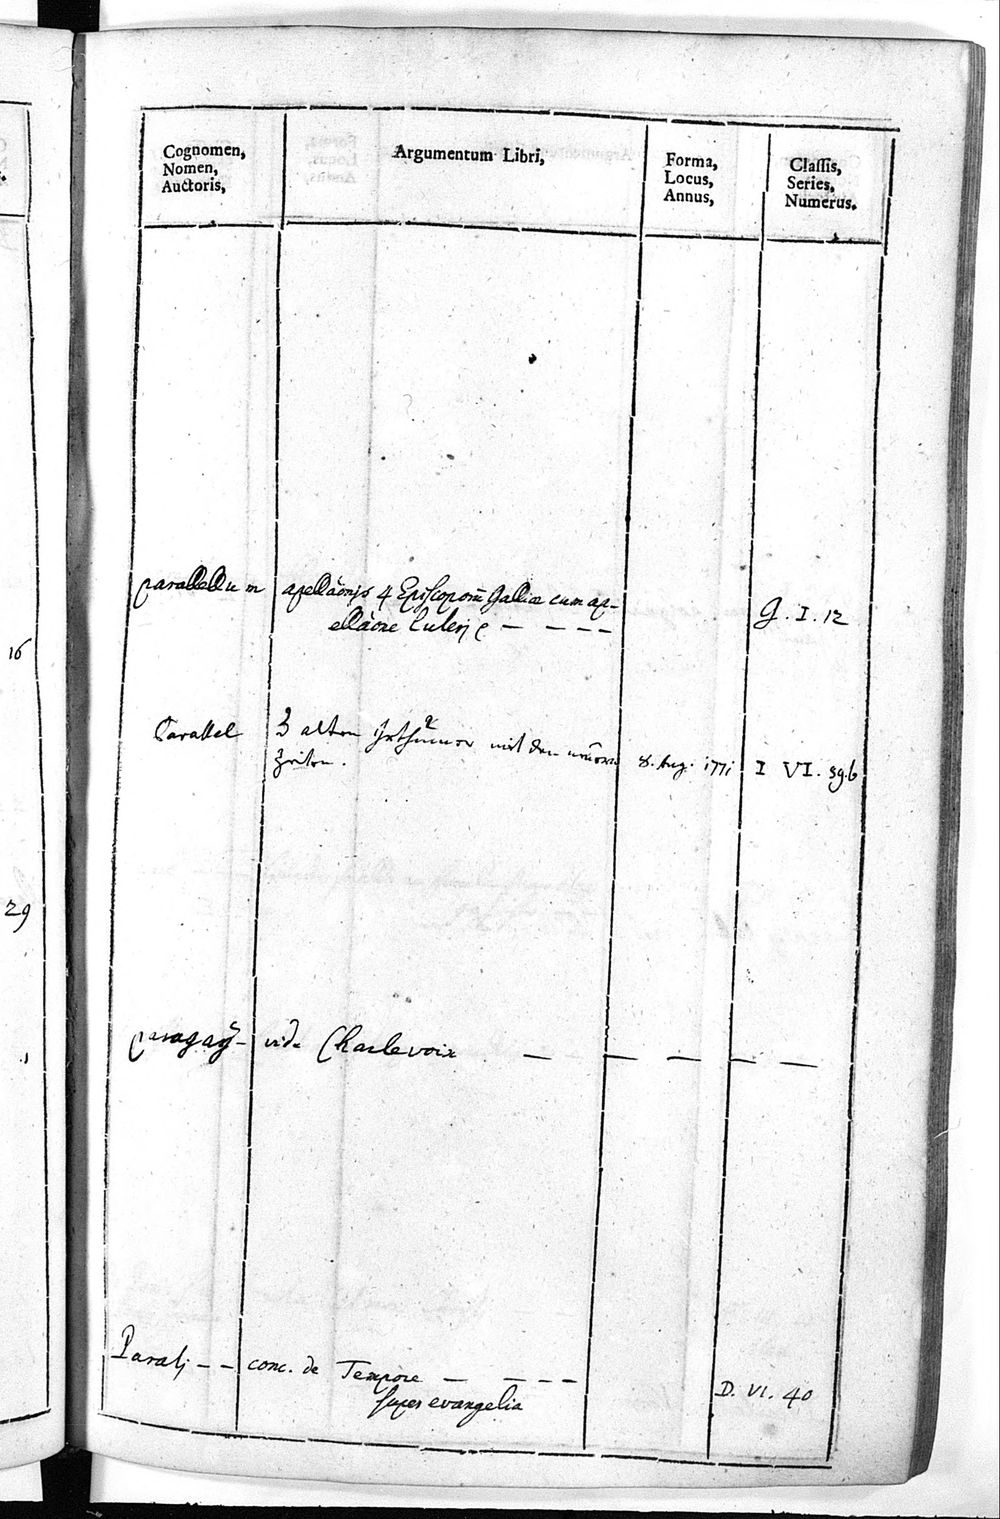 Cognomen,
Nomen,
Auctoris,
Argumentum Libri,
Forma,
Locus,
Annus,
Classis,
Series,
Numerus.
parallelum apellaōnis 4 Episcoporū Galliæ cum ap-
ellaōre Luteri — — — —
G. I. 12
Parallel alten mit den
Zeiten.
8. Aug. 1771
I VI. 59.b
paragaÿ — vide Charlevoix — — — — —
Parati — — conc. de Tempore — — — —
super evangelia
D. VI. 40
16
29